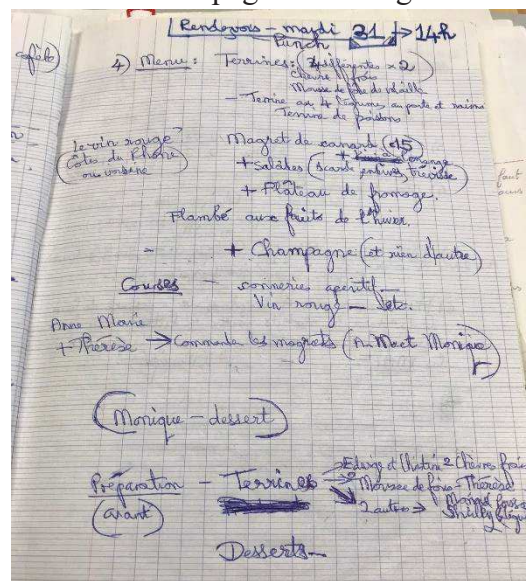 Rendezvous - mardi 31 → 14h
Punch
4) Menu : Terrines : (4 différentes × 2)
chèvre frais
Mousse de foie de volaille
- Terrine aux 4 légumes au poste et raisins
Terrine de poissons
Le vin rouge
(Côtes du Rhône
ou
Magret de canard (15)
+ orange
+ Salades (scarole endives, trévise)
+ Plateau de fromage.
Flambé aux fruits de l'hiver.
+ Champagne (et rien d'autre)
Courses - conneries aperitif -
Vin rouge - etc.
Anne Marie
+ Thérèse → Commande les magrets (A. M et Monique)
(Monique - dessert)
Préparation - Terrines → Edwige et 2 Chèvres frais
(avant) → Mousse de foies - Thérèse
2 autres →
Desserts -